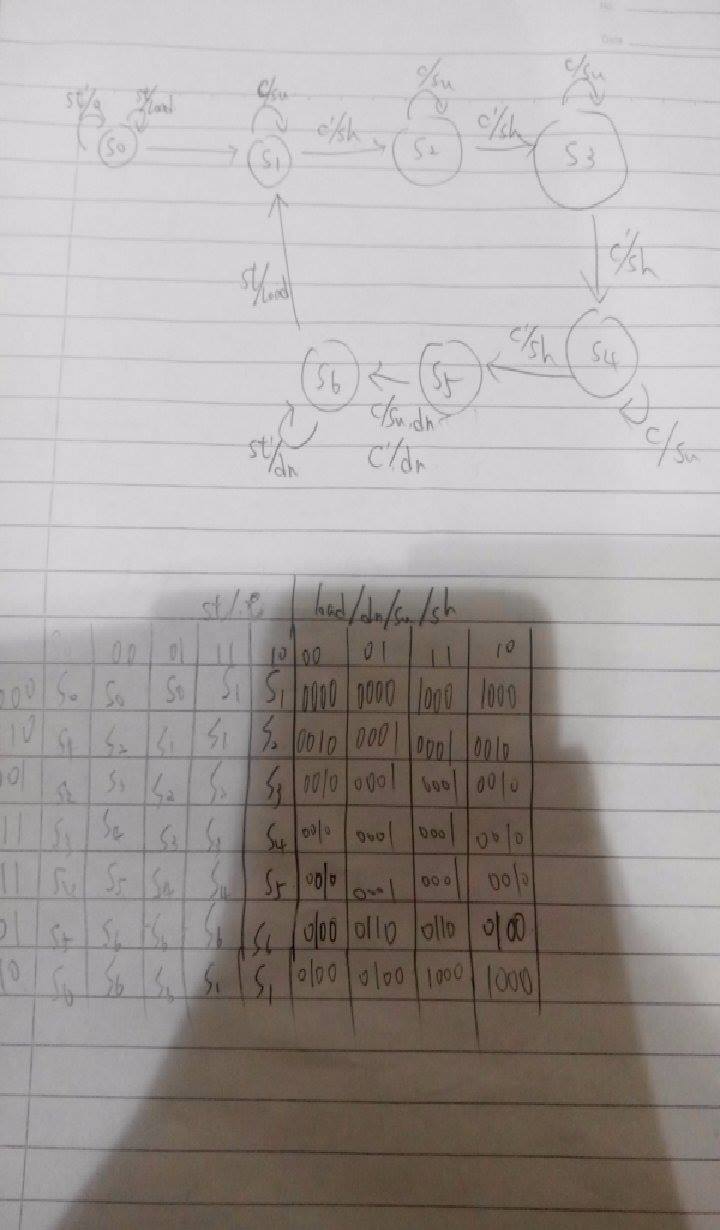 No.
Date
st'/0 st/load c/su c/su c/su
S0 S1 c'/sh S2 c'/sh S3
st/load c'/sh
S6 S5 c'/sh S4
c/su.dn
st'/dn c'/dn c/su
load/dn/su/sh
00 01 11 10 00 01 11 10
S0 S0 S0 S1 S1 0000 0000 1000 1000
S1 S2 S1 S1 S2 0010 0001 0001 0010
S2 S3 S2 S2 S3 0010 0001 0001 0010
S3 S4 S3 S3 S4 0010 0001 0001 0010
S4 S5 S4 S4 S5 0010 0001 0001 0010
S5 S6 S6 S6 S6 0100 0110 0110 0100
S6 S6 S6 S1 S1 0100 0100 1000 1000